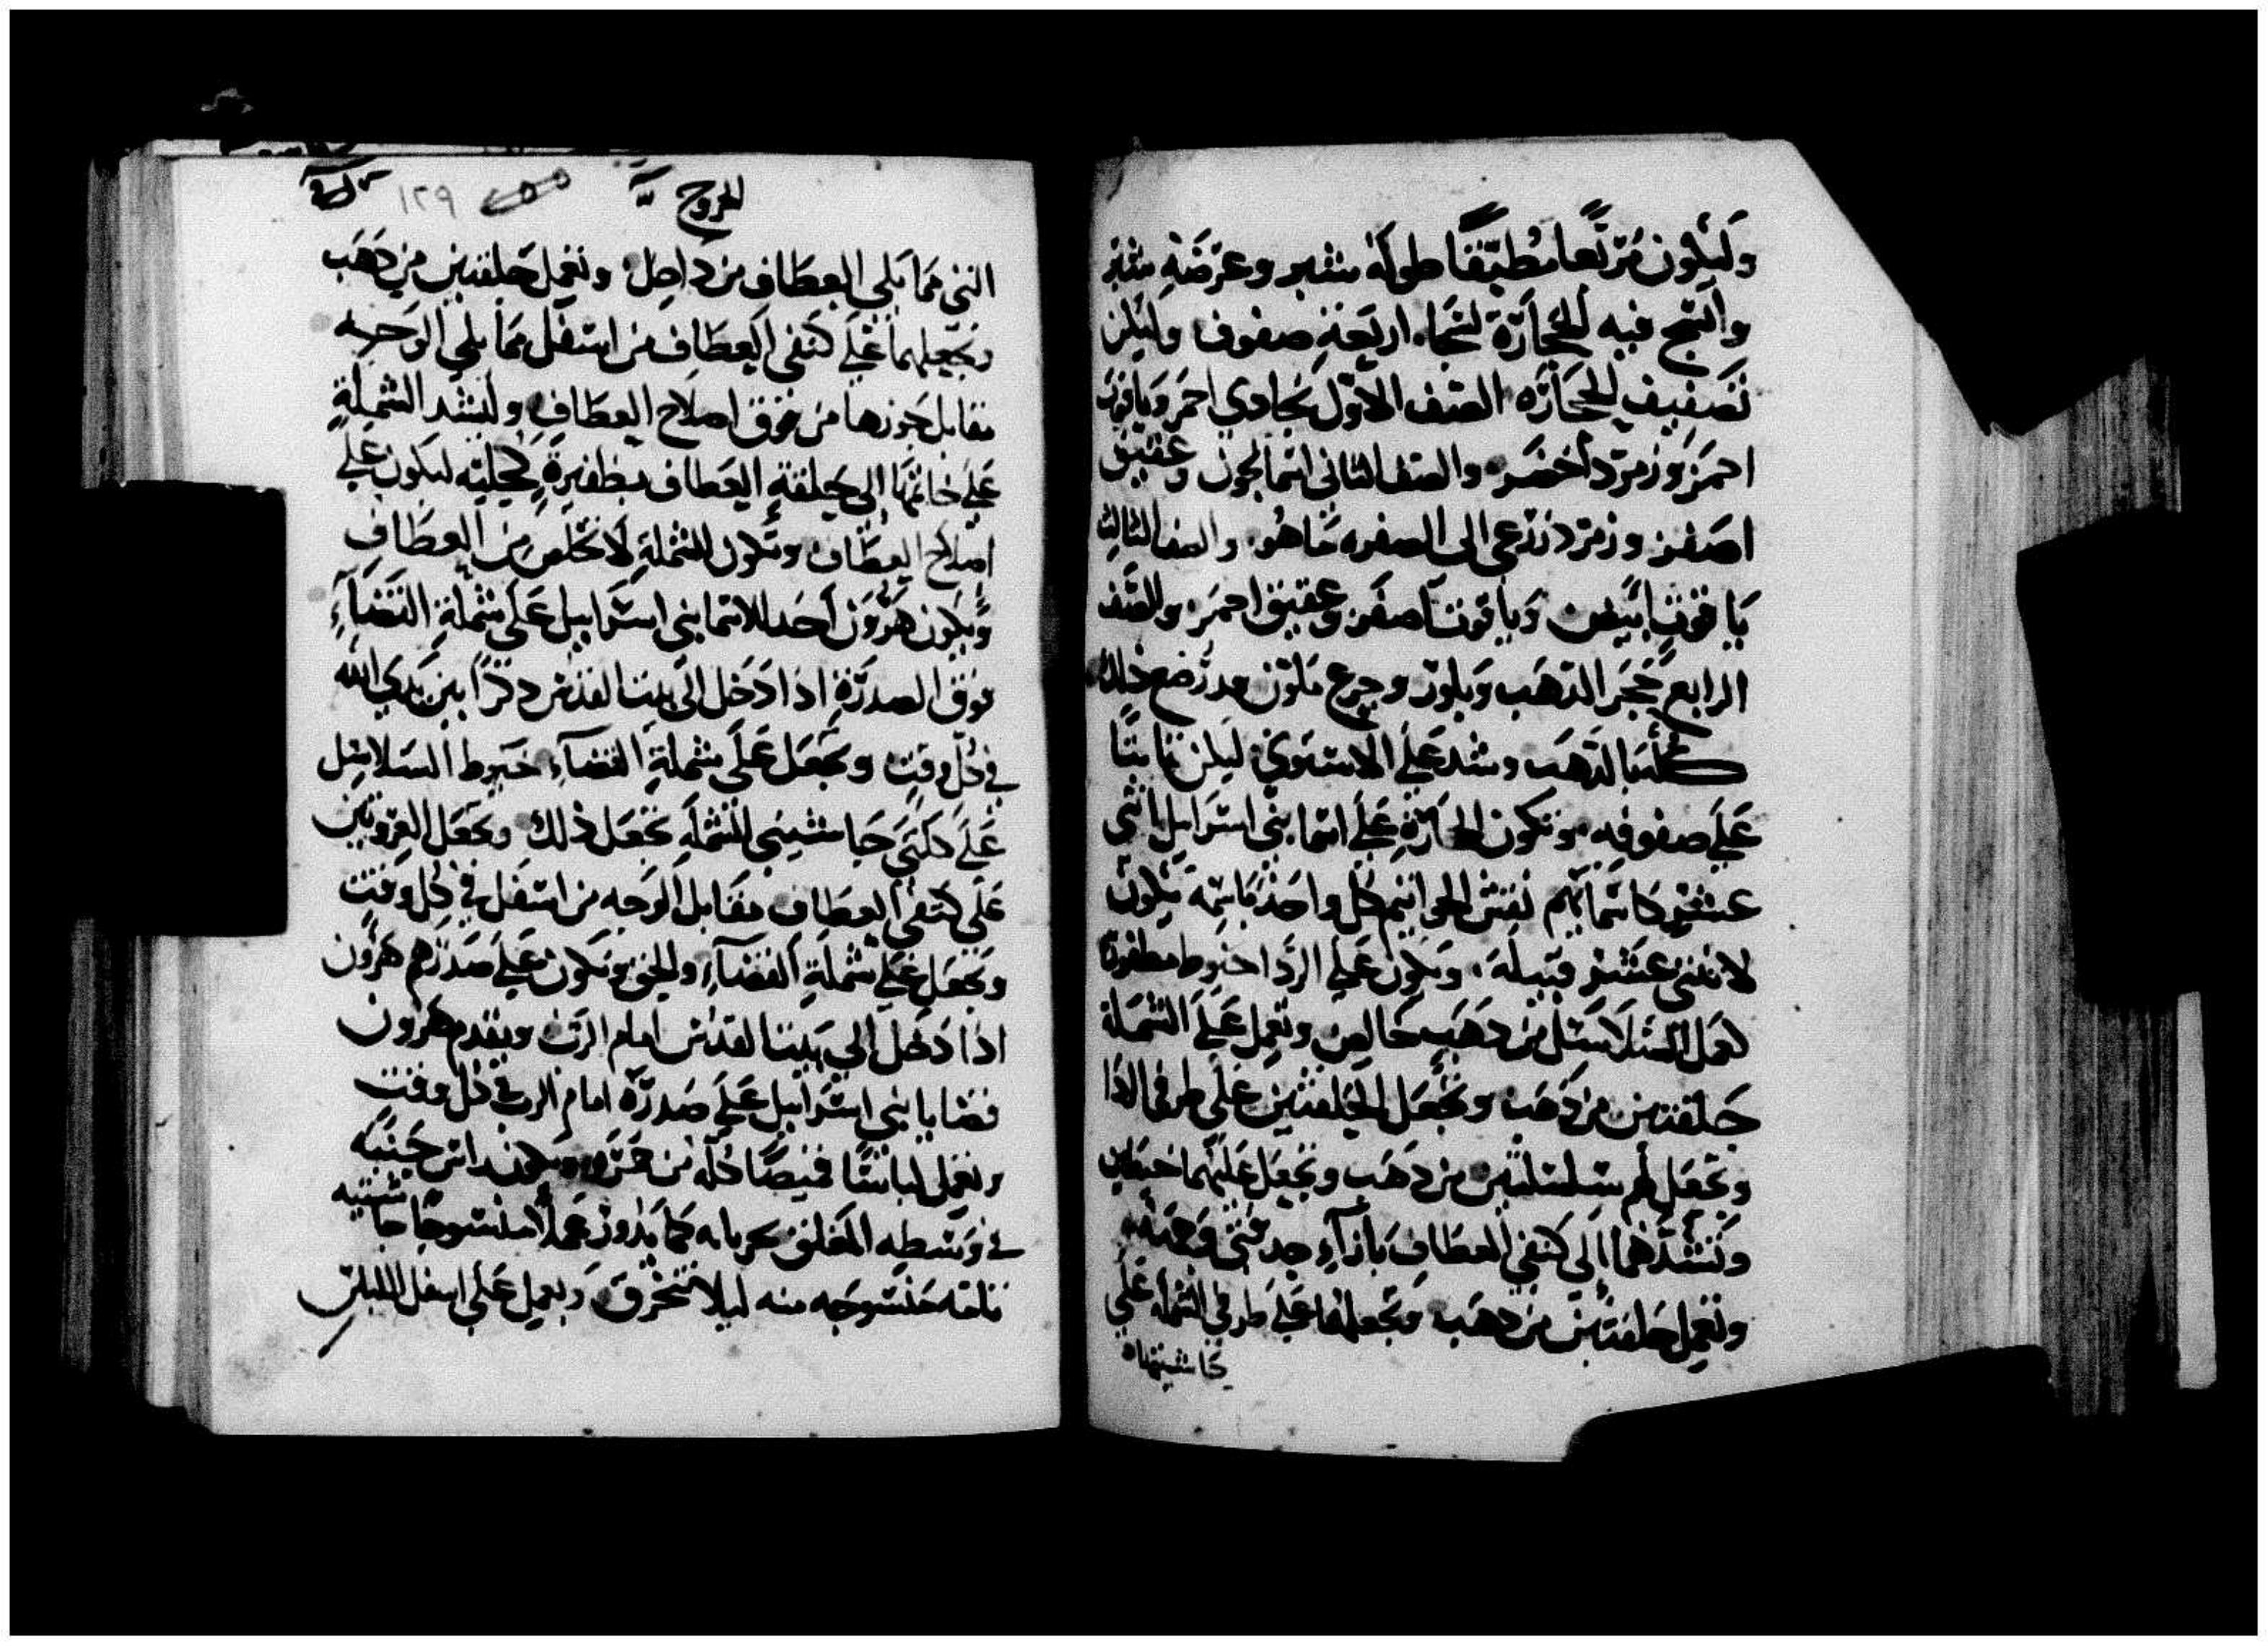 وليكون مربعا مطبقا طوله شبر وعرضه شبر
وانسج فيه الحجارة لتجاه اربعة صفوف وليكن
تصفيف الحجاره الصف الاول بجادي احمر وياقوت
احمر وزمرد اخضر والصف الثاني اسمانجون وعقيق
اصفر وزمرد زرعي الى الصفره ما هو والصف الثالث
ياقوت ابيض وياقوت اصفر وعقيق احمر والصف
الرابع حجر الذهب وبلور وجزع ملون مدرضع ذلك
كله بالذهب وشد على الاستوي ليكن ثابتا
على صفوفه وتكون الحجارة على اسما بني اسرايل اثني
عشر كاسمايهم نقش الخواتيم كل واحد باسمه يكون
لاثنى عشر قبيله ويكون على الردا خيوط مظفورة
لعمل السلاسل من ذهب خالص وتعمل على الشملة
حلقتين من ذهب وتجعل الحلقتين على طرفي الردا
وتجعل لهم سلسلتين من ذهب وتجعل عليهما خيطين
وتشدهما الى كتفي العطاف بازآء صدفتي وجهه
وتعمل حلقتين من ذهب وتجعلهما على طرفي الشملة على
حاشيتها
الخروج
١٢٩
التى مما يلي العطاف من داخل وتعمل حلقتين من ذهب
وتجعلهما على كتفي العطاف من اسفل مما يلي الوجه
مقابل جوزها من فوق اصلاح العطاف ولتشد الشملة
على خاتمها الى حلقة العطاف بظفيرة كحليه ليكون على
اصلاح العطاف وتكون الشملة لا تخلص من العطاف
ويكون هرون احد الاسما بني اسراييل على شملة القضآء
فوق الصدرة اذا دخل الى بيت القدس ذكرا بين يدي الله
في كل وقت وتجعل على شملة القضآء خيوط السلاسل
على كلتى حاشيتي الشملة تجعل ذلك وتجعل العروتين
على كتفي العطاف مقابل الوجه من اسفل في كل وقت
وتجعل على شملة القضآء والحق ويكون على صدرهم هرون
اذا دخل الى بيت القدس امام الرب ويقدم هرون
قضايا بني اسراييل على صدره امام الرب في كل وقت
وتعمل لباسا قميصا كله من قز ويكون راس جيبه
في وسطه المغلق كرباه كما يدور عملا منسوجا حاشيته
نامه منسوجه منه ليلا تتخرق وبعمل على اسفل الملبس